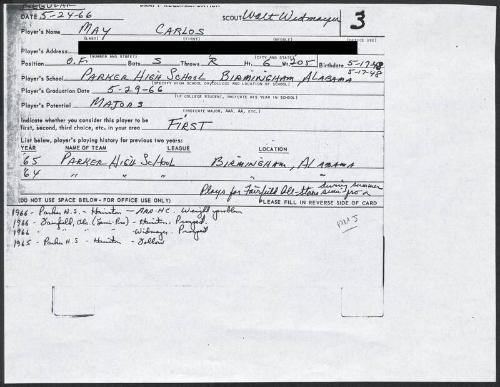 REGULAR
DATE 5-24-66 SCOUT Walt Widmayer 3
Player's Name MAY CARLOS
(LAST) (FIRST) (MIDDLE) (OFFICE USE)
Player's Address
(NUMBER AND STREET) (CITY AND STATE)
Position O.F. Bats S Throws R Ht. 6 Wt. 205 Birthdate 5-17-48
5-17-48
Player's School PARKER HIGH SCHOOL BIRMINGHAM ALABAMA
(SPECIFY HIGH SCHOOL OR COLLEGE AND LOCATION OF SCHOOL)
Player's Graduation Date 5-29-66
(IF COLLEGE STUDENT, INDICATE HIS YEAR IN SCHOOL)
Player's Potential MAJORS
(INDICATE MAJOR, AAA, AA, etc.)
Indicate whether you consider this player to be
first, second, third choice, etc. in your area FIRST
List below, player's playing history for previous two years:
YEAR NAME OF TEAM LEAGUE LOCATION
65 PARKER HIGH SCHOOL BIRMINGHAM, ALABAMA
64 " " " " "
Plays for Fairfield All-Stars semi-pro during summer
(DO NOT USE SPACE BELOW-FOR OFFICE USE ONLY) PLEASE FILL IN REVERSE SIDE OF CARD
1966 - Parker H.S. - Hairston - Weight problem
1966 - Fairfield, Ala (Semi-Pro) - Hairston. Prospect
1966 - " " " Widmayer. Prospect
1965 - Parker H.S - Hairston - Follow